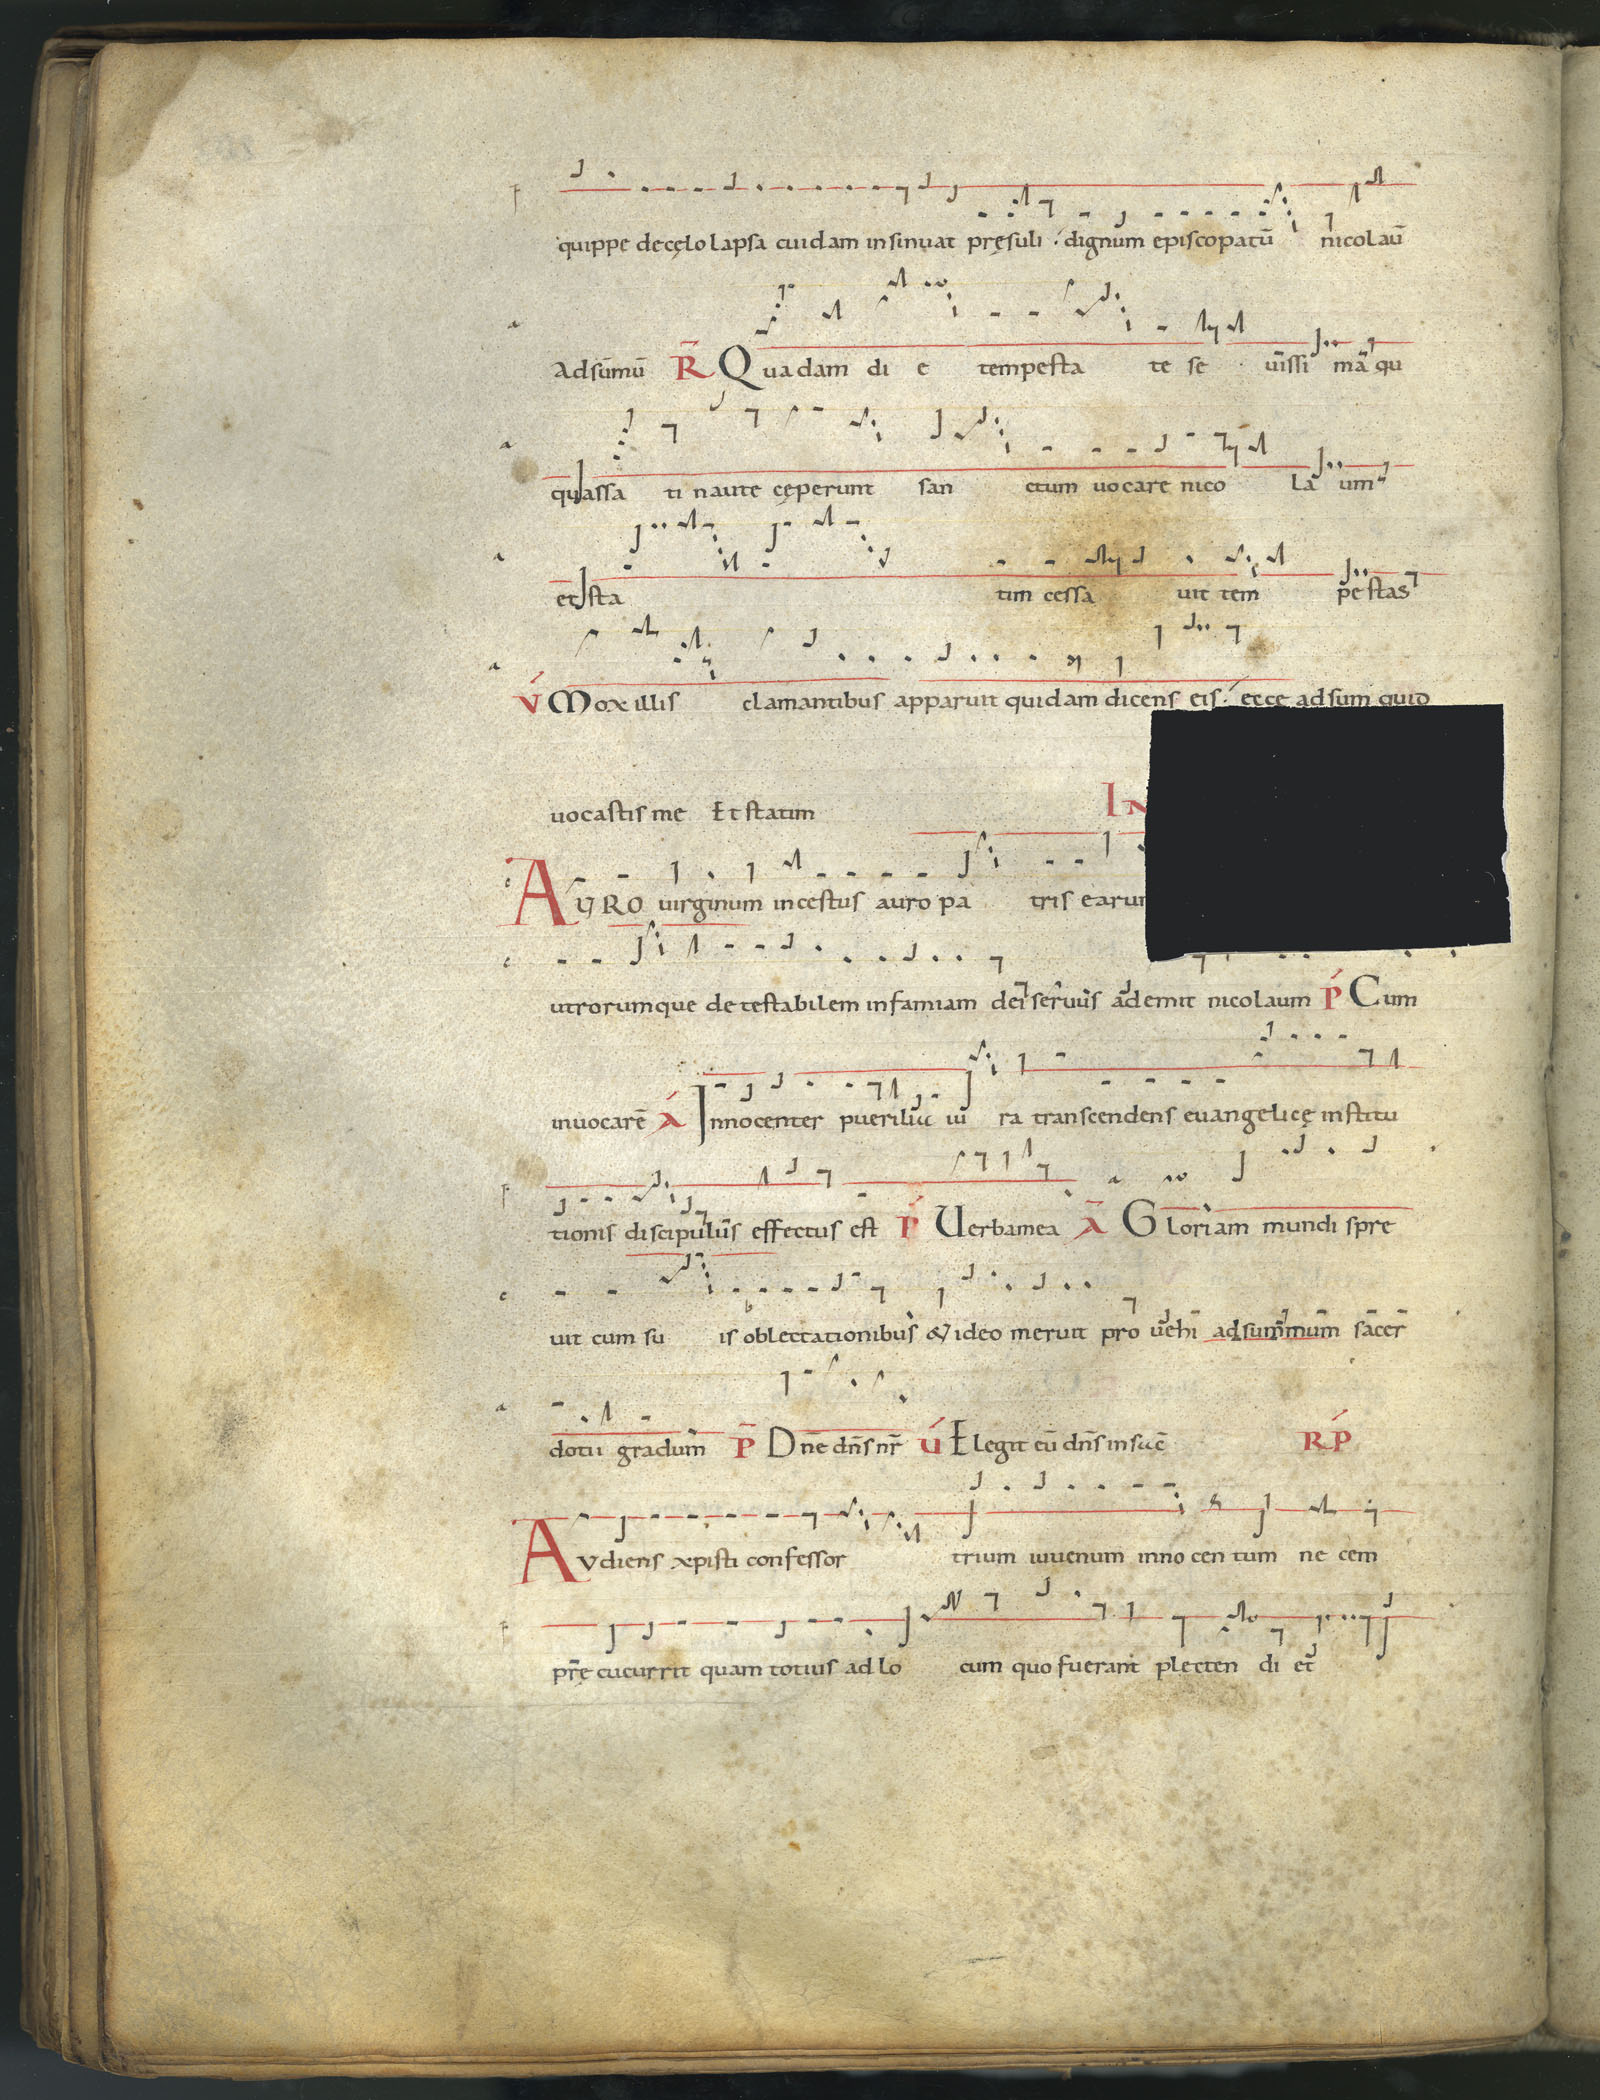 quippe de cęlo lapsa cuidam insinuat pręsuli dignum episcopatū nicolaū
adsūmū R̄ Quadam di e tempesta te se uissi ma qu
quassa ti naute cęperunt san ctum uocare nico la um
et sta tim cessa uit tem pestas
V́ Mox illis clamantibus apparuit quidam dicens eis ecce adsum quid
uocastis me Et statim IN
AURO uirginum incestus auro pa tris
utrorumque detestabilem infamiam dei seruus ademit nicolaum Ṕ Cum
inuocarē Á Innocenter puerilia iu ra transcendens euangelicę institu
tionis discipulus effectus est Ṕ Uerba mea Ā Gloriam mundi spre
uit cum su is oblectationibus & ideo meruit pro uehi ad summum sacer
dotii gradum P̄ Dn̄e dn̄s nr̄ Ú Elegit eū dn̄s in suc̄ RṔ
Audiens xpisti confessor trium iuuenum innocentum necem
prę cucurrit quam totius ad lo cum quo fuerant plecten di et